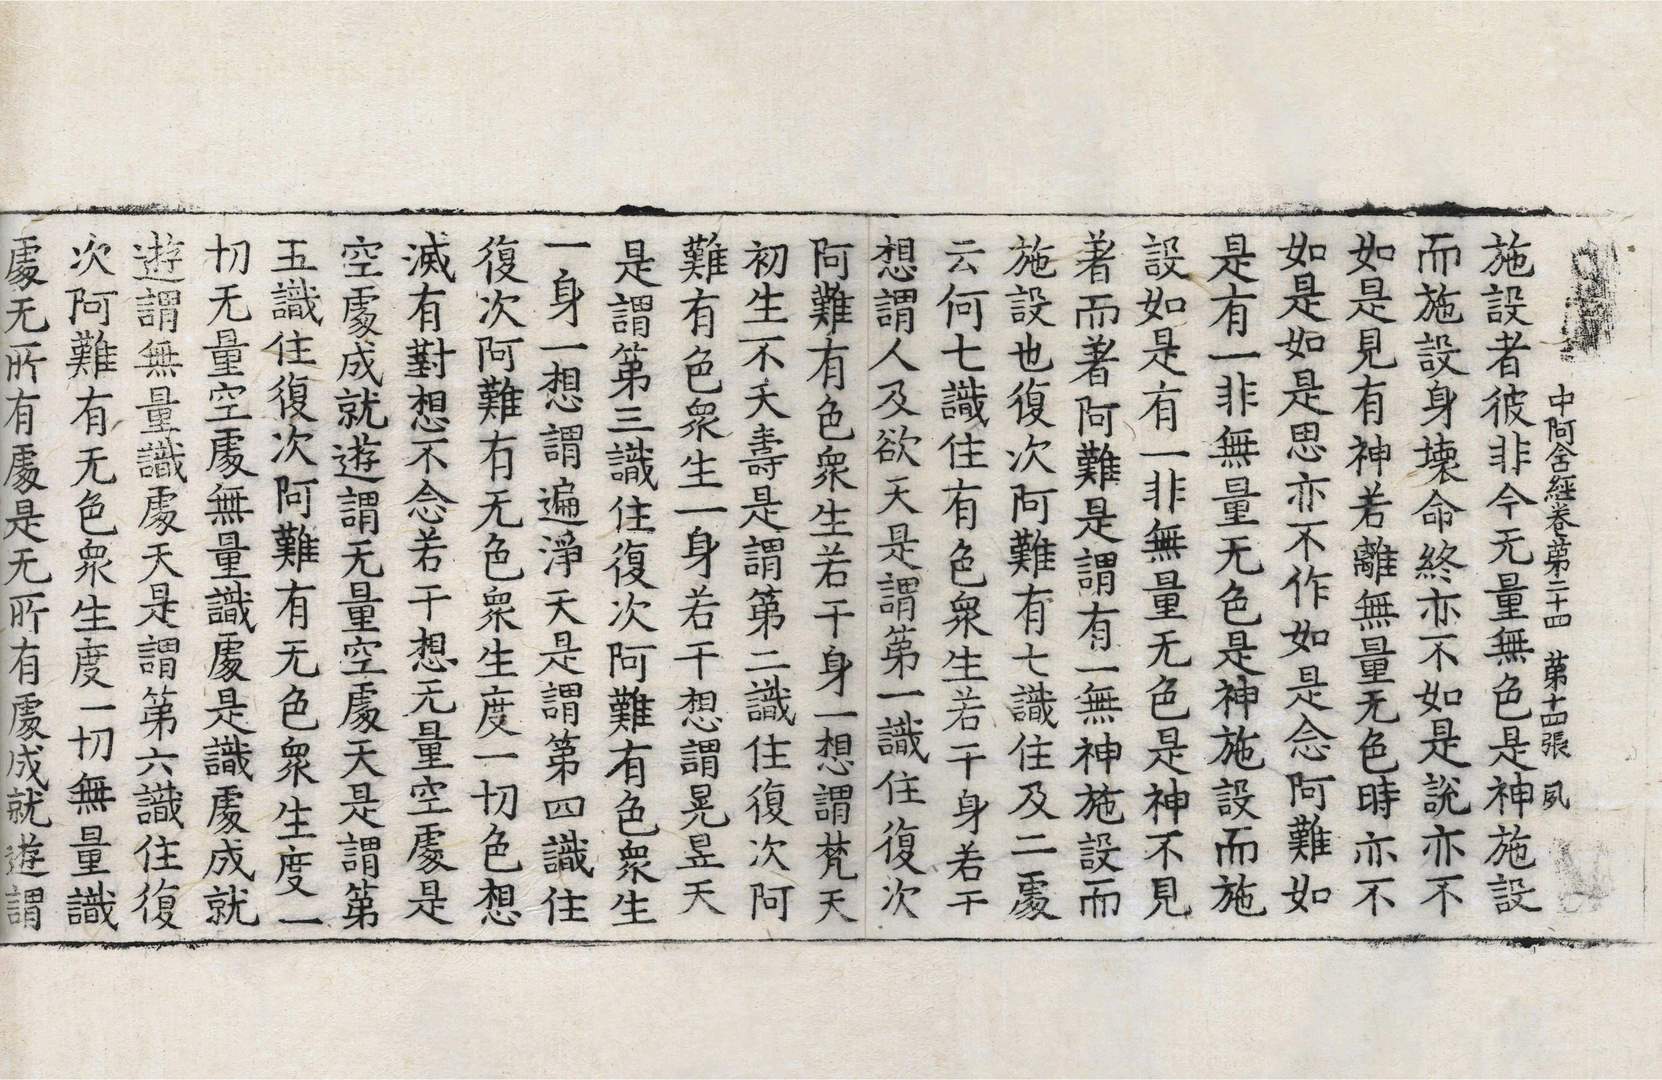 中阿含經卷第二十四　第十四張　夙
施設者彼非今无量無色是神施設
而施設身壞命終亦不如是說亦不
如是見有神若離無量无色時亦不
如是如是思亦不作如是念阿難如
是有一非無量无色是神施設而施
設如是有一非無量无色是神不見
著而著阿難是謂有一無神施設而
施設也復次阿難有七識住及二處
云何七識住有色衆生若干身若干
想謂人及欲天是謂第一識住復次
阿難有色衆生若干身一想謂梵天
初生不夭壽是謂第二識住復次阿
難有色衆生一身若干想謂晃昱天
是謂第三識住復次阿難有色衆生
一身一想謂遍淨天是謂第四識住
復次阿難有无色衆生度一切色想
滅有對想不念若干想无量空處是
空處成就遊謂无量空處天是謂第
五識住復次阿難有无色衆生度一
切无量空處無量識處是識處成就
遊謂無量識處天是謂第六識住復
次阿難有无色衆生度一切無量識
處无所有處是无所有處成就遊謂